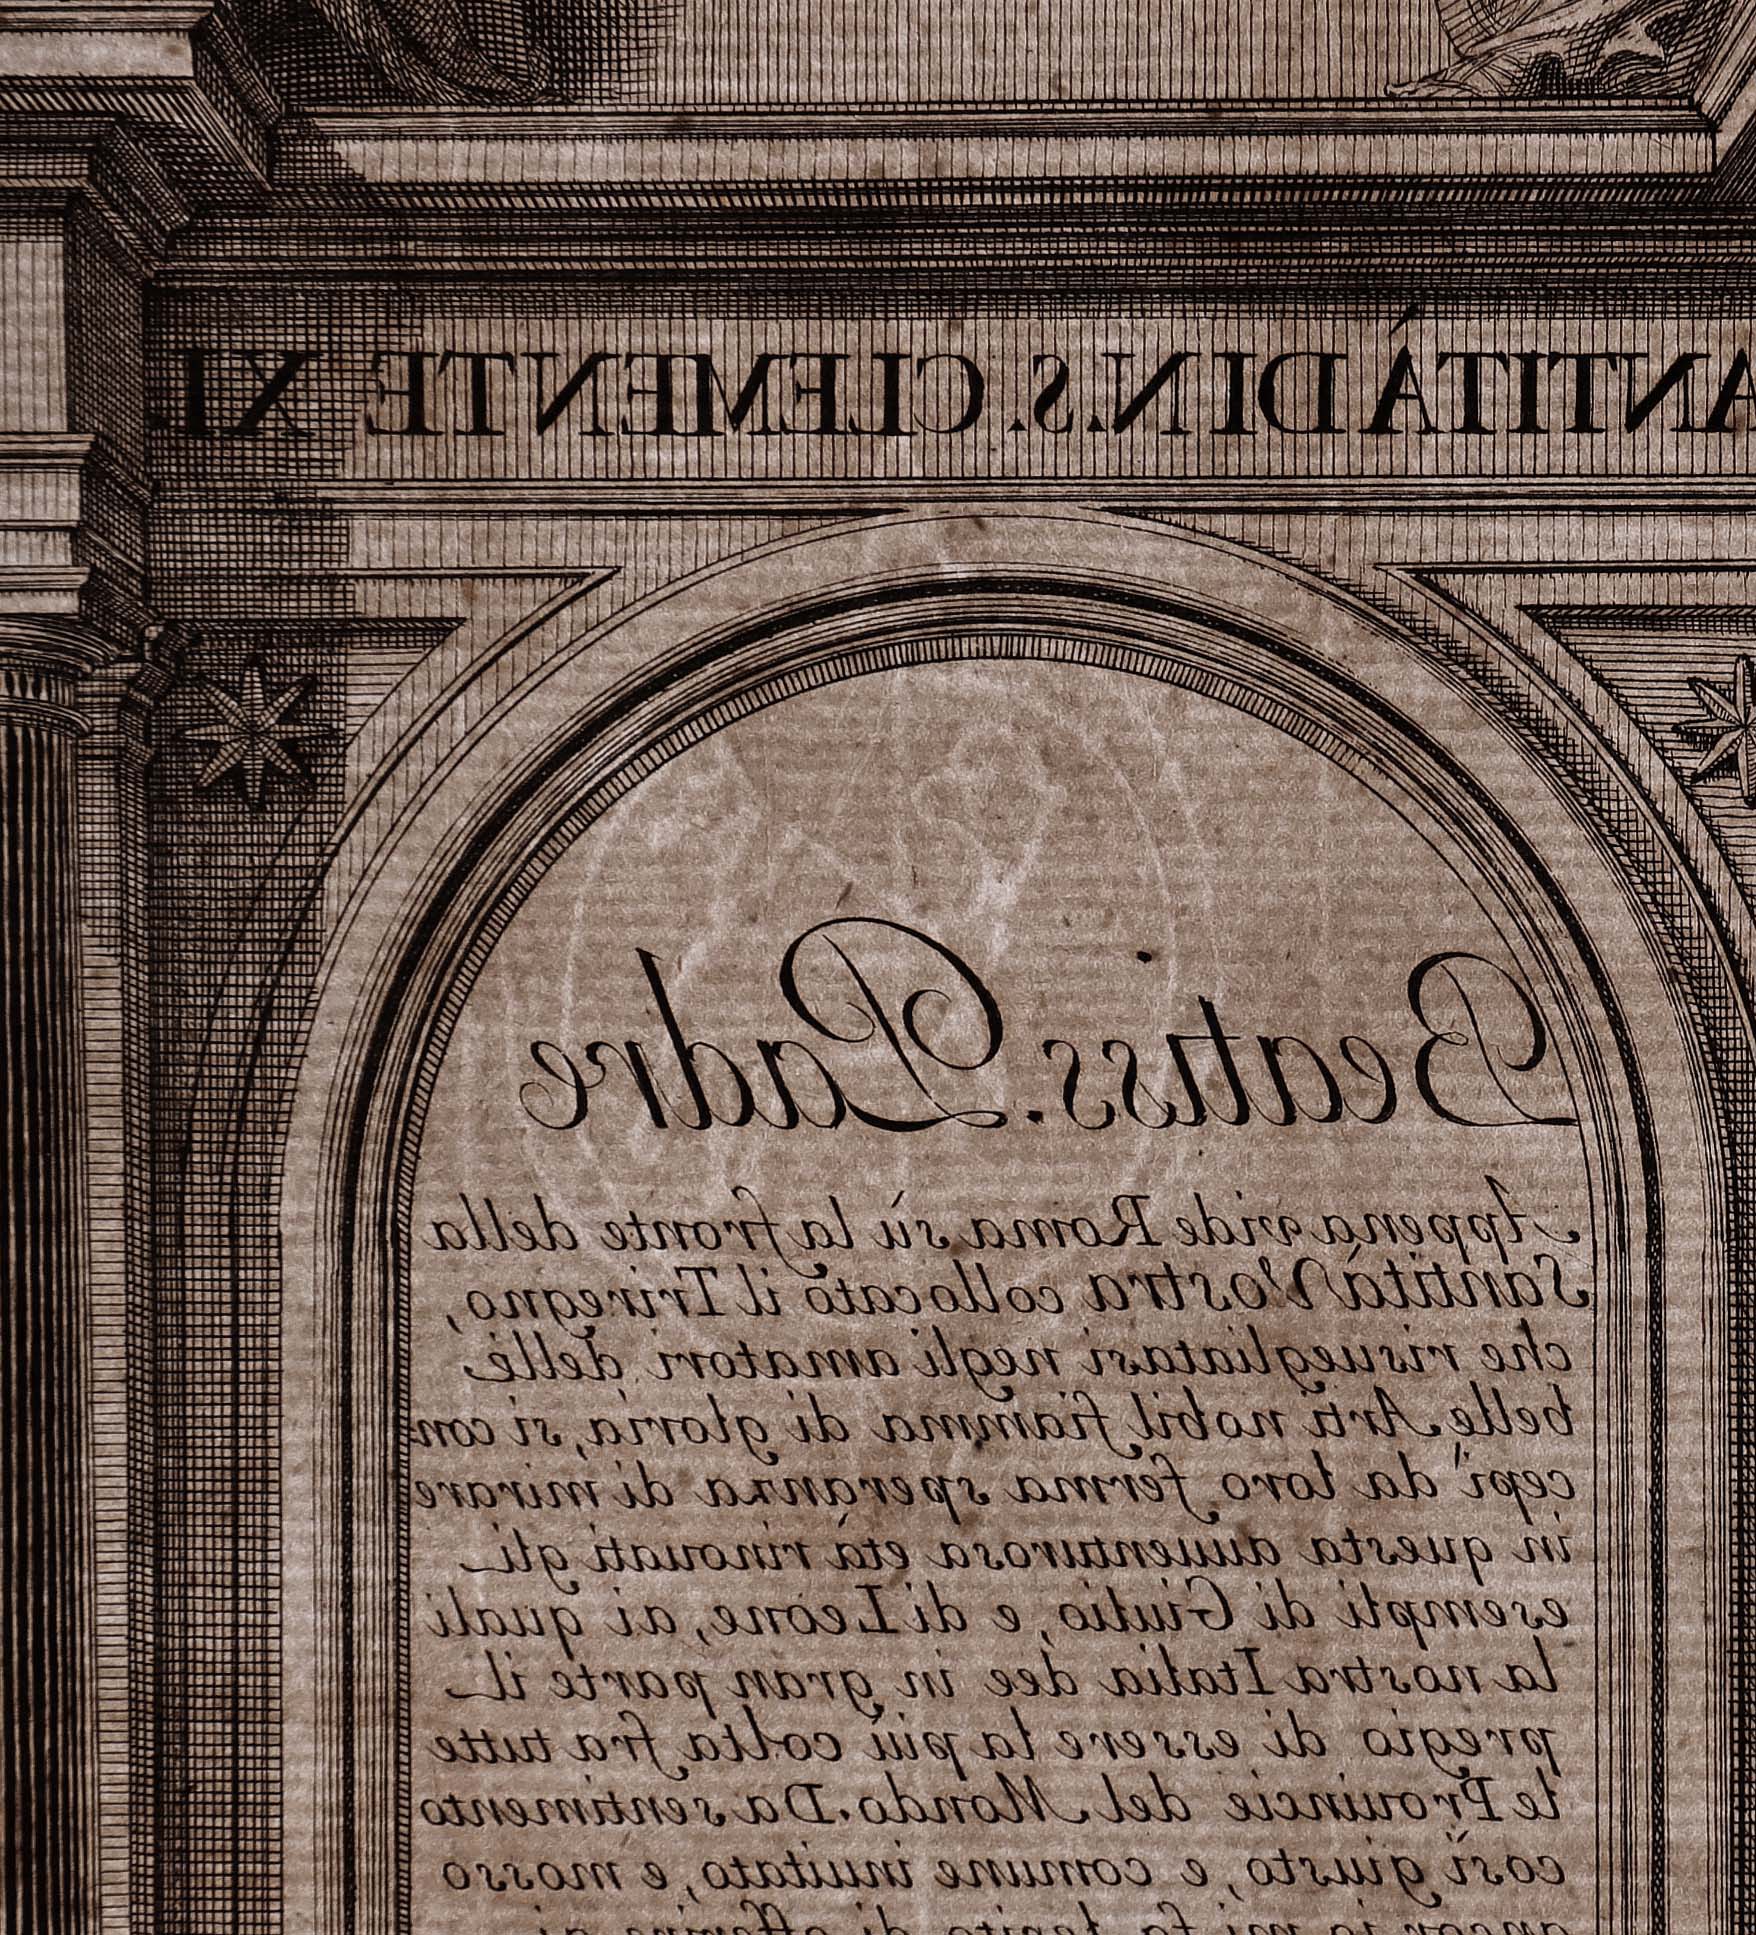 ANTITÁ DI N.S. CLEMENTE XI.
Beatiss. Padre
Appena vide Roma sù la fronte della
Santità Vostra collocato il Triregno,
che risuegliatasi negli amatori delle
belle Arti nobil fiamma di gloria, si con=
cepì da loro ferma speranza di mirare
in questa auuenturosa età rinouati gli
esempli di Giulio, e di Leone, ai quali
la nostra Italia dee in gran parte il
pregio di essere la più colta fra tutte
le Prouincie del Mondo. Da sentimento
così giusto, e comune inuitato, e mosso
ancor io mi fo ardito di offerire ai